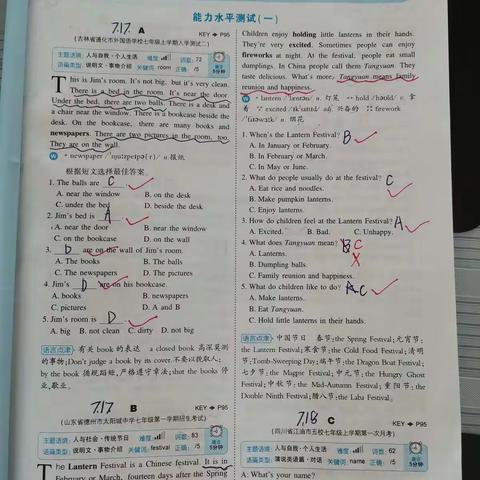 能力水平测试(一)
7.17. A
KEY ➡ P95
(吉林省通化市外国语学校七年级上学期入学测试二)
主题语境: 人与自我·个人生活 难度: 词数: 72
语篇类型: 说明文·事物介绍 关键词: room 正确: /5 建议 5分钟
This is Jim's room. It's not big, but it's very clean.
There is a bed in the room. It's near the door.
Under the bed, there are two balls. There is a desk and
a chair near the window. There is a bookcase beside the
desk. On the bookcase, there are many books and
newspapers. There are two pictures in the room, too.
They are on the wall.
W * newspaper /ˈnjuːzpeɪpə(r)/ n. 报纸
根据短文选择最佳答案。
1. The balls are C .
A. near the window B. on the desk
C. under the bed D. beside the desk
2. Jim's bed is A .
A. near the door B. near the window
C. on the bookcase D. on the wall
3. D are on the wall of Jim's room.
A. The books B. The balls
C. The newspapers D. The pictures
4. Jim's D are on his bookcase.
A. books B. newspapers
C. pictures D. A and B
5. Jim's room is D .
A. big B. not clean C. dirty D. not big
语言点津: 有关 book 的表达 a closed book 高深莫测
的事物;Don't judge a book by its cover.不要以貌取人;
by the book 循规蹈矩,严格遵守章法;shut the books 停
业,歇业。
7.17 B
KEY ➡ P95
(山东省德州市太阳城中学七年级第一学期招生考试)
主题语境: 人与社会·传统节日 难度: 词数: 83
语篇类型: 说明文·事物介绍 关键词: festival 正确: /5 建议 5分钟
The Lantern Festival is a Chinese festival. It is in
February or March, fourteen days after the Spring
Children enjoy holding little lanterns in their hands.
They're very excited. Sometimes people can enjoy
fireworks at night. At the festival, people eat small
dumplings. In China people call them Tangyuan. They
taste delicious. What's more, Tangyuan means family
reunion and happiness.
W * lantern /ˈlæntən/ n. 灯笼 ** hold /həʊld/ v. 拿
着 ** excited /ɪkˈsaɪtɪd/ adj. 兴奋的 ** firework
/ˈfaɪəwɜːk/ n. 烟花
1. When's the Lantern Festival? B
A. In January or February.
B. In February or March.
C. In May or June.
2. What do people usually do at the festival? C
A. Eat rice and noodles.
B. Make pumpkin lanterns.
C. Enjoy lanterns.
3. How do children feel at the Lantern Festival? A
A. Excited. B. Bad. C. Unhappy.
4. What does Tangyuan mean? C
A. Lanterns.
B. Dumpling balls.
C. Family reunion and happiness.
5. What do children like to do? C
A. Make lanterns.
B. Eat Tangyuan.
C. Hold little lanterns in their hands.
语言点津: 中国节日 春节:the Spring Festival;元宵节:
the Lantern Festival;寒食节:the Cold Food Festival;清明
节:Tomb-Sweeping Day;端午节:the Dragon Boat Festival;
七夕节:the Magpie Festival;中元节:the Hungry Ghost
Festival;中秋节:the Mid-Autumn Festival;重阳节:the
Double Ninth Festival;腊八节:the Laba Festival。
7.18 C
KEY ➡ P95
(四川省江油市五校七年级上学期第一次月考)
主题语境: 人与自我·个人生活 难度: 词数: 62
语篇类型: 演说类语篇·对话 关键词: name 正确: /5 建议 5分钟
A: What's your name?